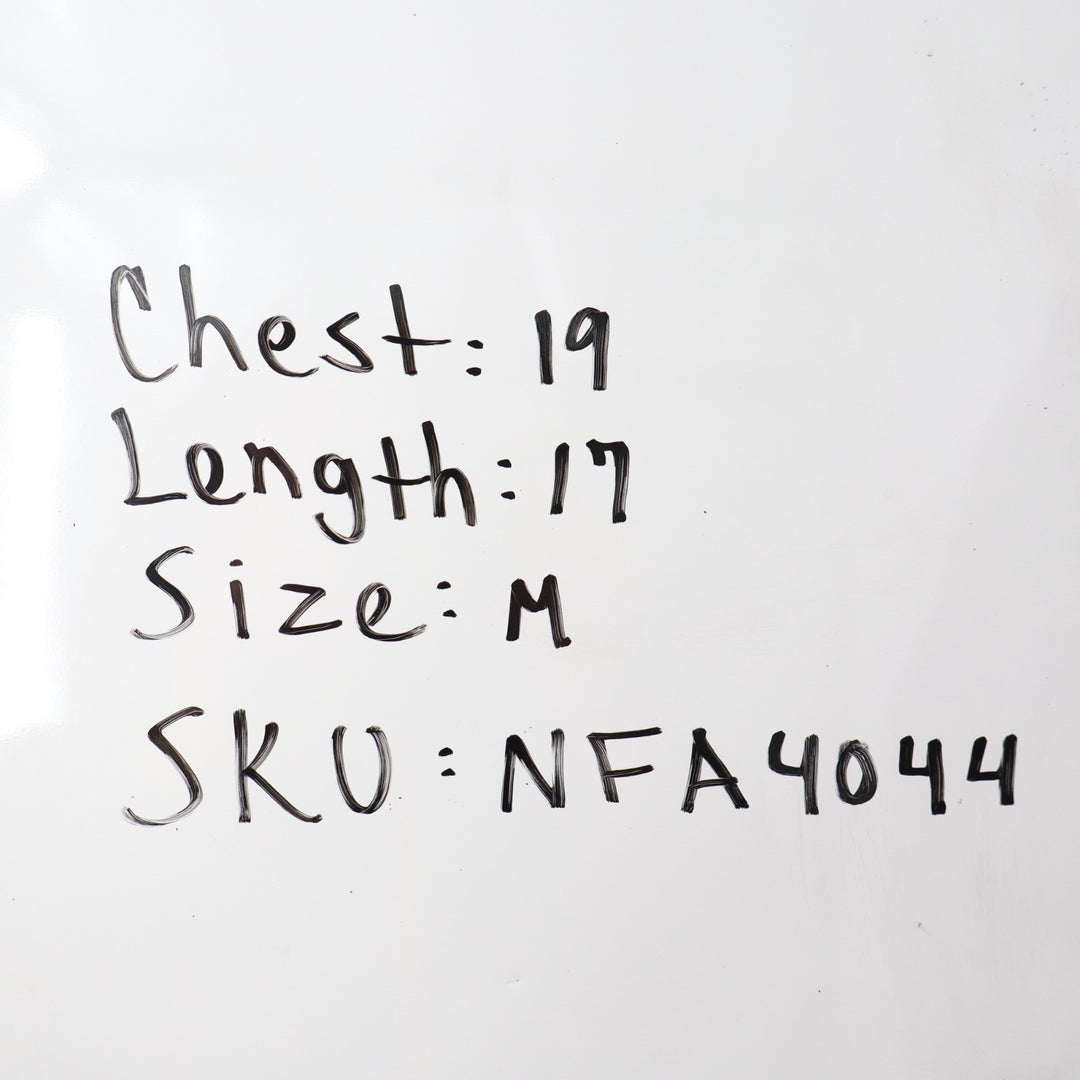 Chest: 19
Length: 17
Size: M
SKU: NFA4044